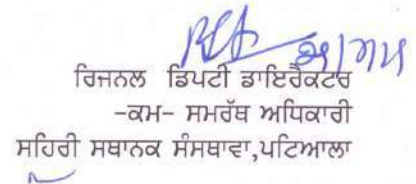 ਰਿਜਨਲ ਡਿਪਟੀ ਡਾਇਰੈਕਟਰ
-ਕਮ- ਸਮਰੱਥ ਅਧਿਕਾਰੀ
ਸਹਿਰੀ ਸਥਾਨਕ ਸੰਸਥਾਵਾ,ਪਟਿਆਲਾ